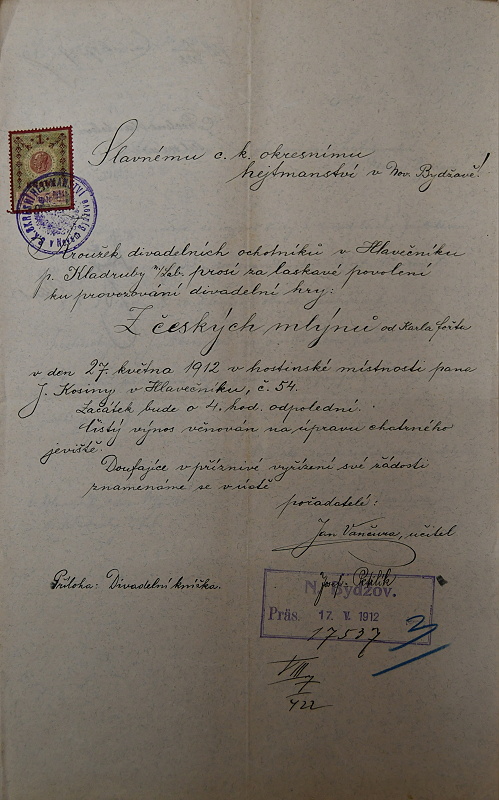 Slavnému c. k. okresnímu
hejtmanství v Nov. Bydžově!
Kroužek divadelních ochotníků v Hlavečníku
p. Kladruby n/Lab. prosí za laskavé povolení
ku provozování divadelní hry:
Z českých mlýnů od Karla Fořta
v den 27. května 1912 v hostinské místnosti pana
J. Kosiny v Hlavečníku, č. 54.
Začátek bude o 4. hod. odpolední.
Čistý výnos věnován na úpravu chatrného
jeviště.
Doufajíce v příznivé vyřízení své žádosti
znamenáme se v úctě
pořadatelé:
Jan Vančura, učitel
Příloha: Divadelní knížka.
Josef
N. Bydžov.
Präs. 17. V. 1912
17537
3
VIII
422